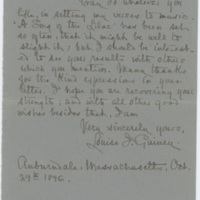 way or another you
like, in setting my verses to music.
A Song of the "Lilac" has been set,
so often, that it might be well to
slight it, but I should be interested
to see your results with others
which you mention. Many thanks
for the kind expressions in your
letter. I hope you are recovering your
strength; and with all other good
wishes besides that, I am
Very sincerely yours,
Louise I. Guiney.
Auburndale, Massachusetts, Oct.
29th 1896.